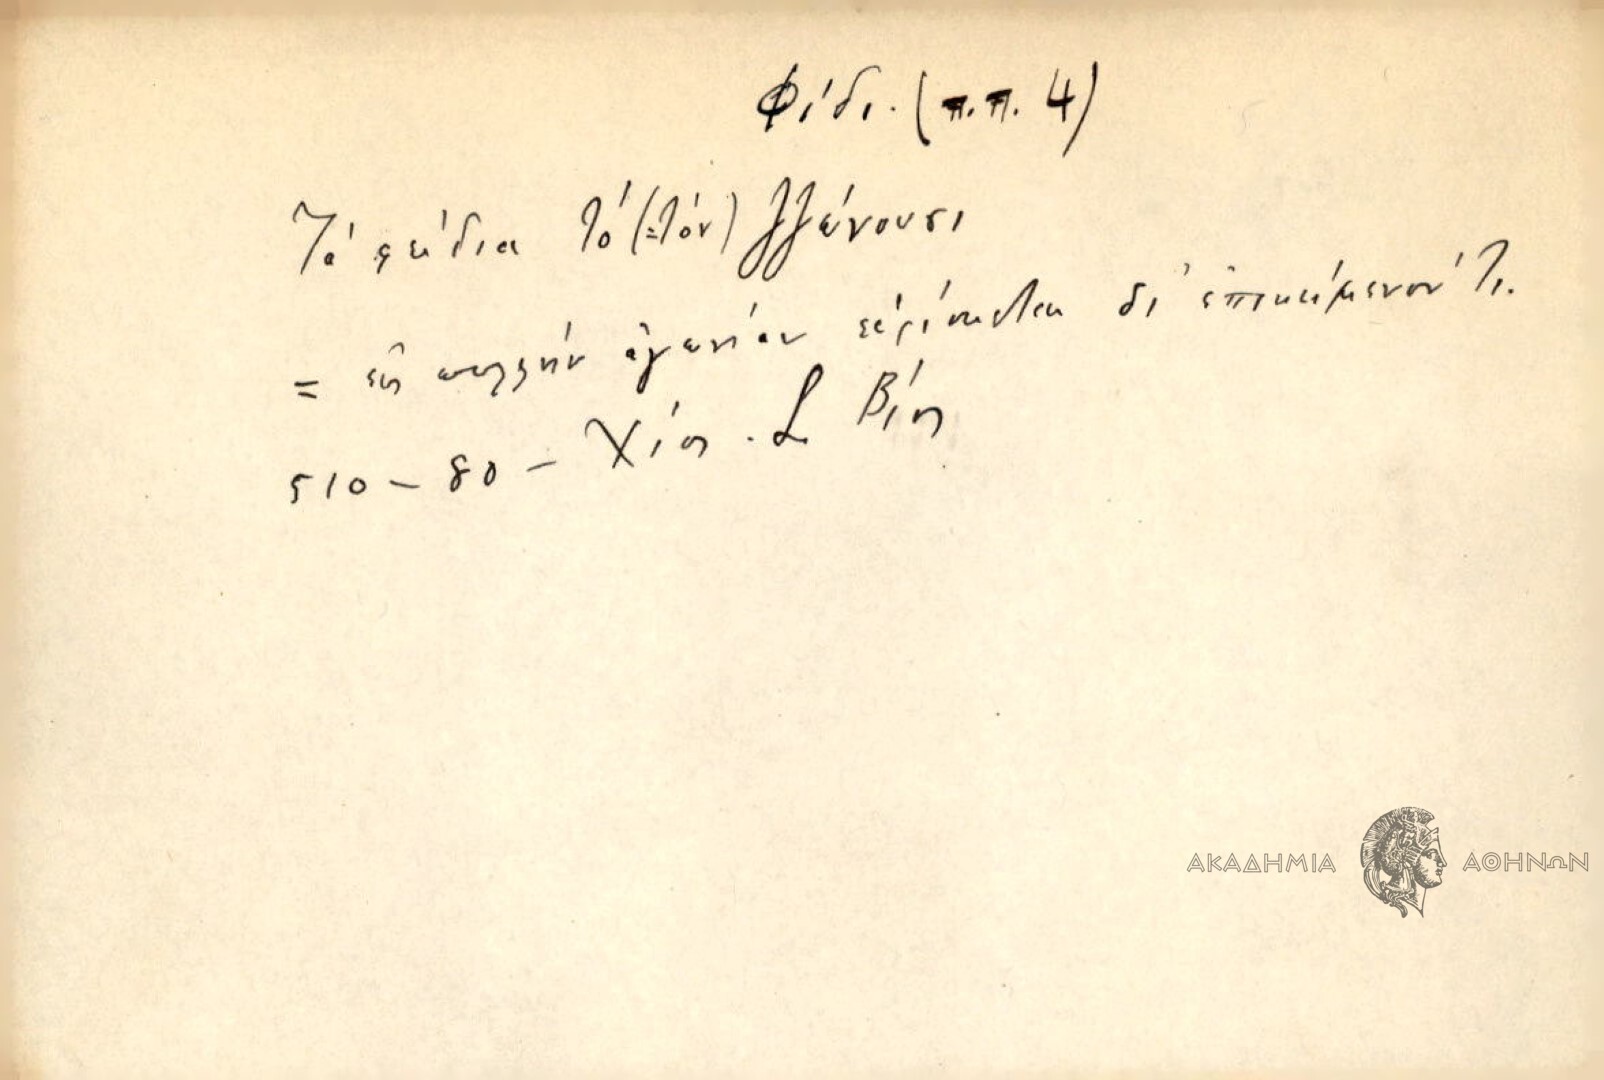 Φίδι. (π.π. 4)
Τά φείδια τό (=τόν) ζζώνουσι
= εἰς πολλήν ἀγωνίαν εὑρίσκεται δι' ἐπικείμενόν τι.
510 – 80 – Χίος. Σ Βίος
ΑΚΑΔΗΜΙΑ ΑΘΗΝΩΝ